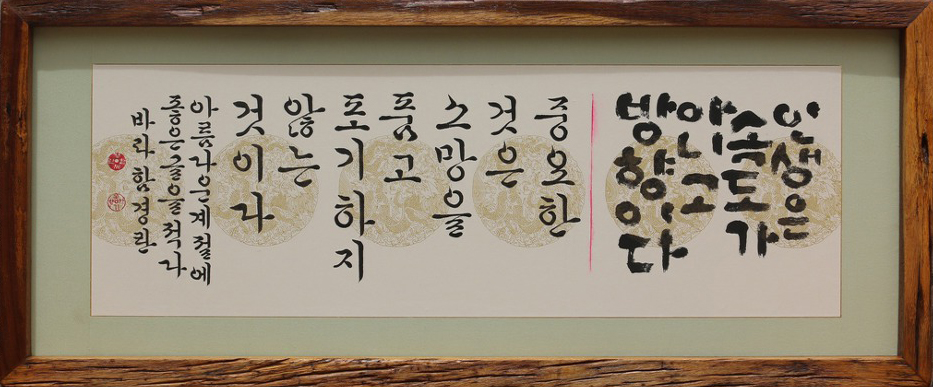 인생은
속도가
아니고
방향이다
중요한
것은
소망을
품고
포기하지
않는
것이다
아름다운계절에
좋은글을적다
바라함경란